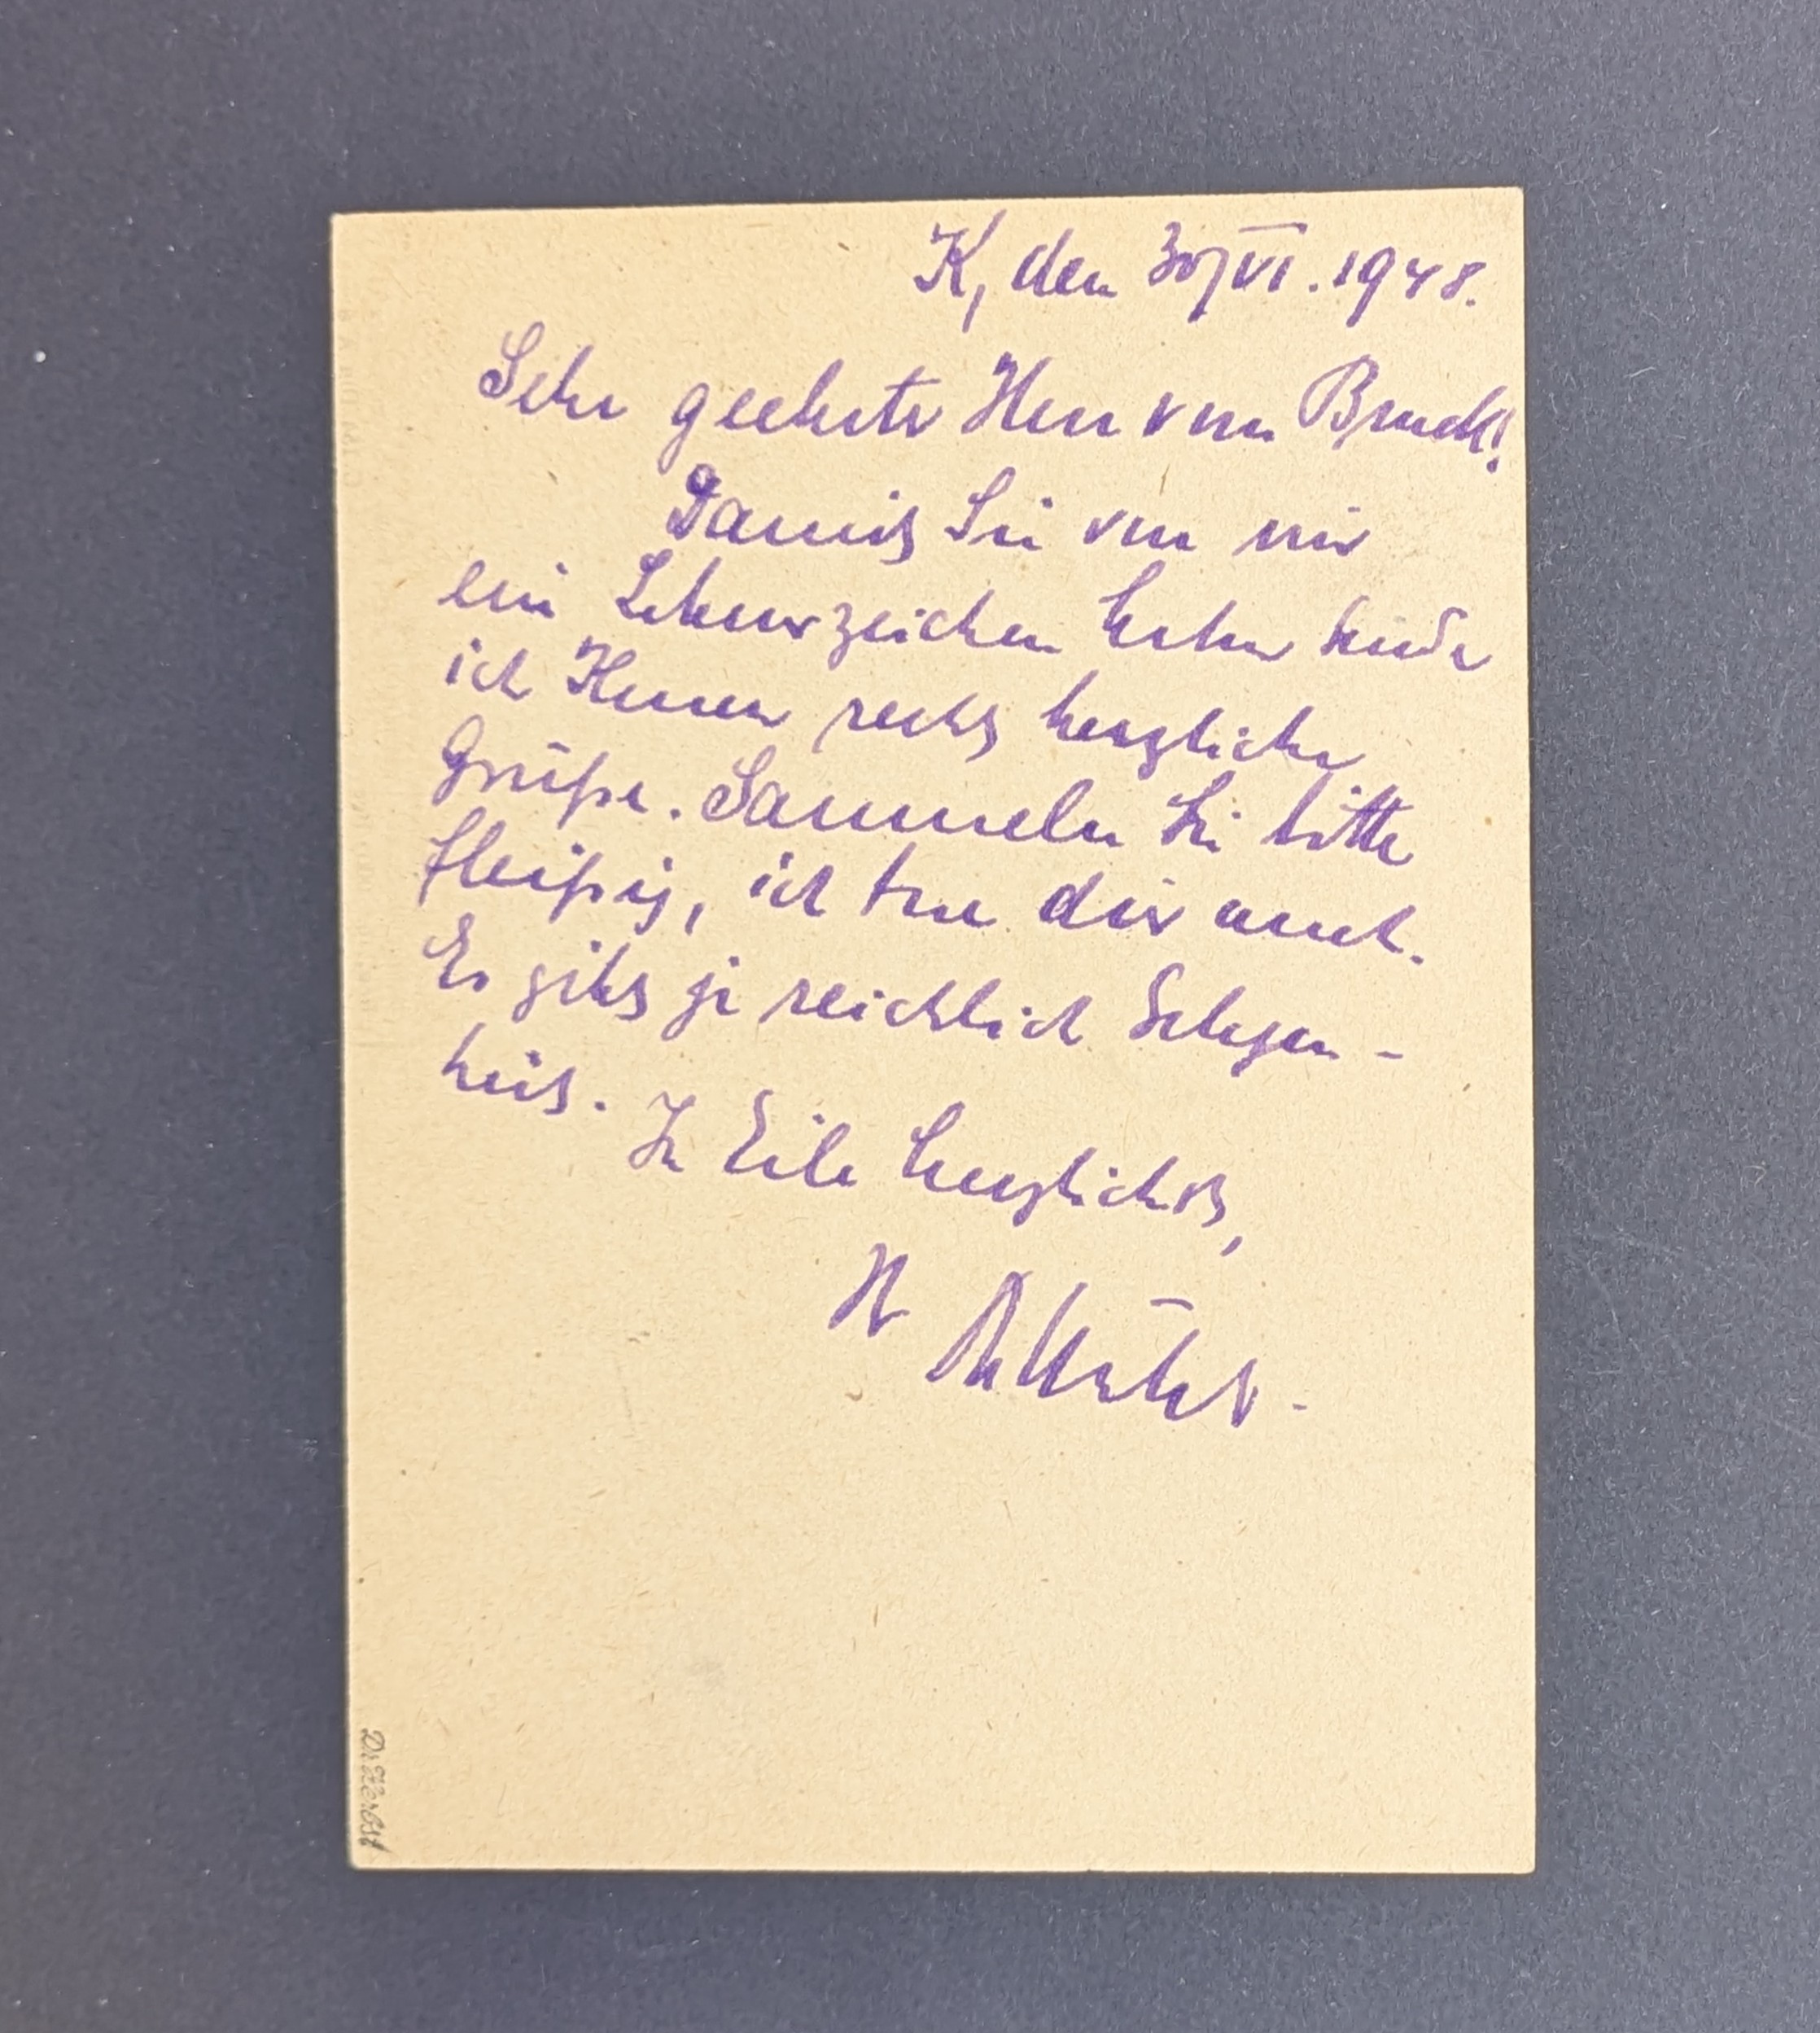 K, den 30/VI. 1948.
Sehr geehrter Herr von Bruck!
Damit Sie von mir
ein Lebenszeichen haben sende
ich Ihnen recht herzliche
Grüße. Sammeln Sie bitte
fleißig, ich tue dies auch.
Es gibt ja reichlich Gelegen-
heit. In Eile herzlichst,
Dr. Herbst